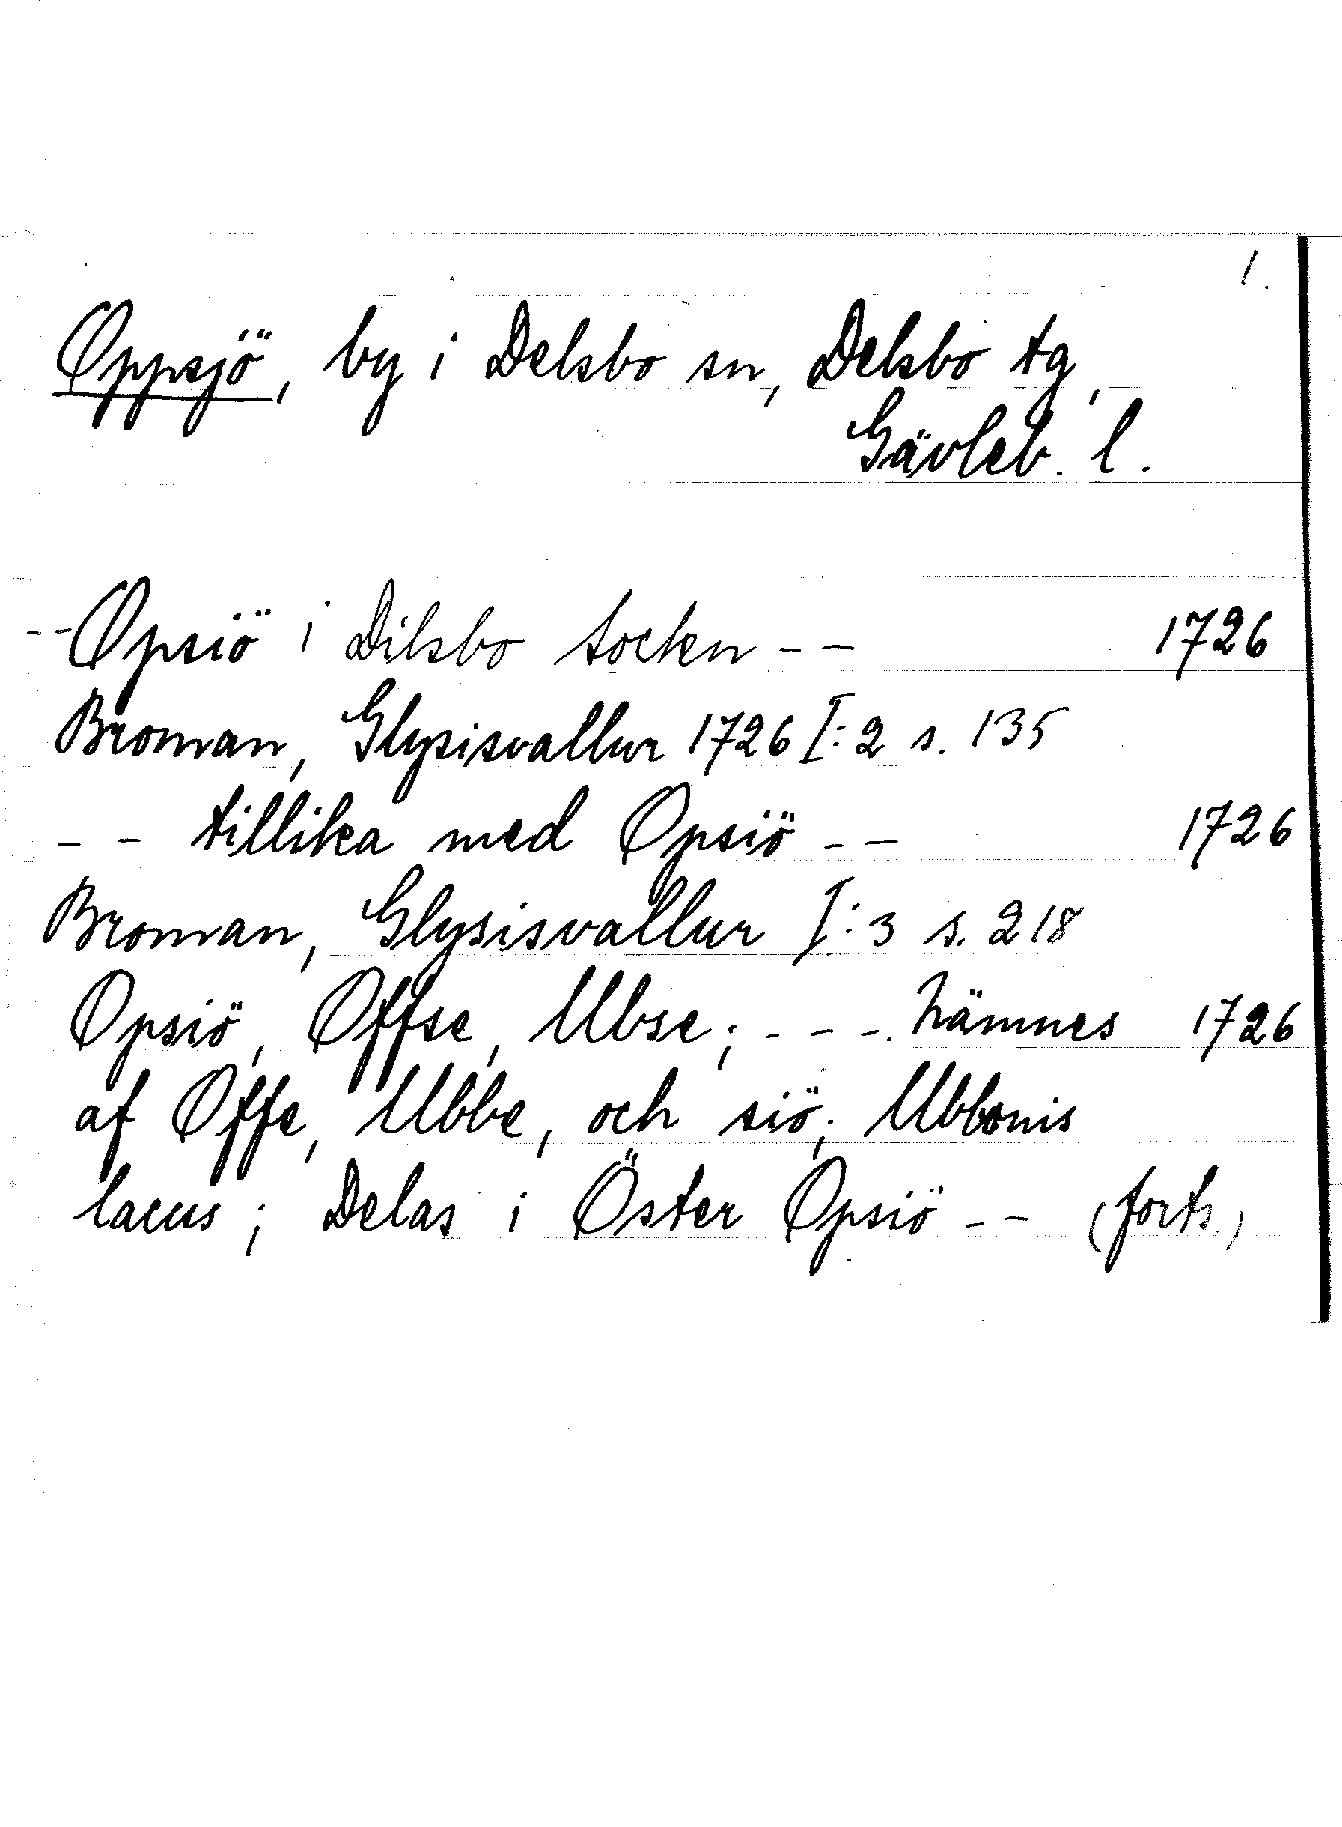 1.
Oppsjö, by i Delsbo sn, Delsbo tg,
Gävleb. l.
--Opsiö i Dilsbo socken -- 1726
Broman, Glysisvallur 1726 I:2 s. 135
-- tillika med Opsiö -- 1726
Broman, Glysisvallur I:3 s. 218
Opsiö, Offse, Ubse; ---. Nämnes 1726
af Offe, Ubbe, och siö; Ubbonis
lacus; Delas i Öster Opsiö -- (forts.)